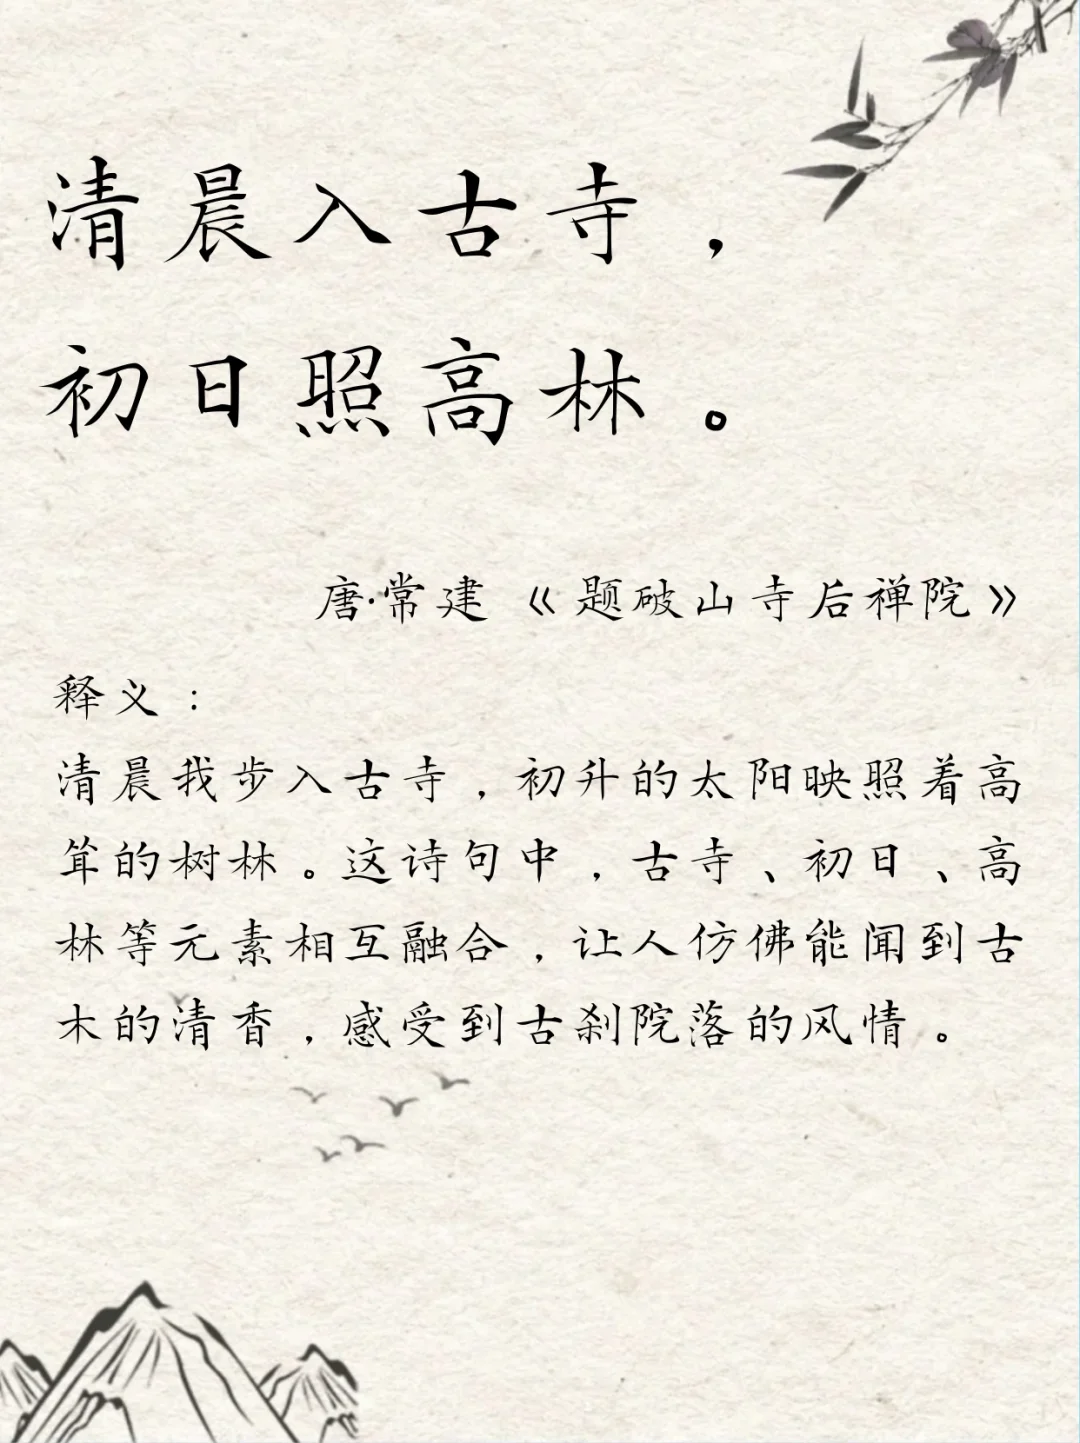 清晨入古寺，
初日照高林。
唐·常建《题破山寺后禅院》
释义：
清晨我步入古寺，初升的太阳映照着高
耸的树林。这诗句中，古寺、初日、高
林等元素相互融合，让人仿佛能闻到古
木的清香，感受到古刹院落的风情。